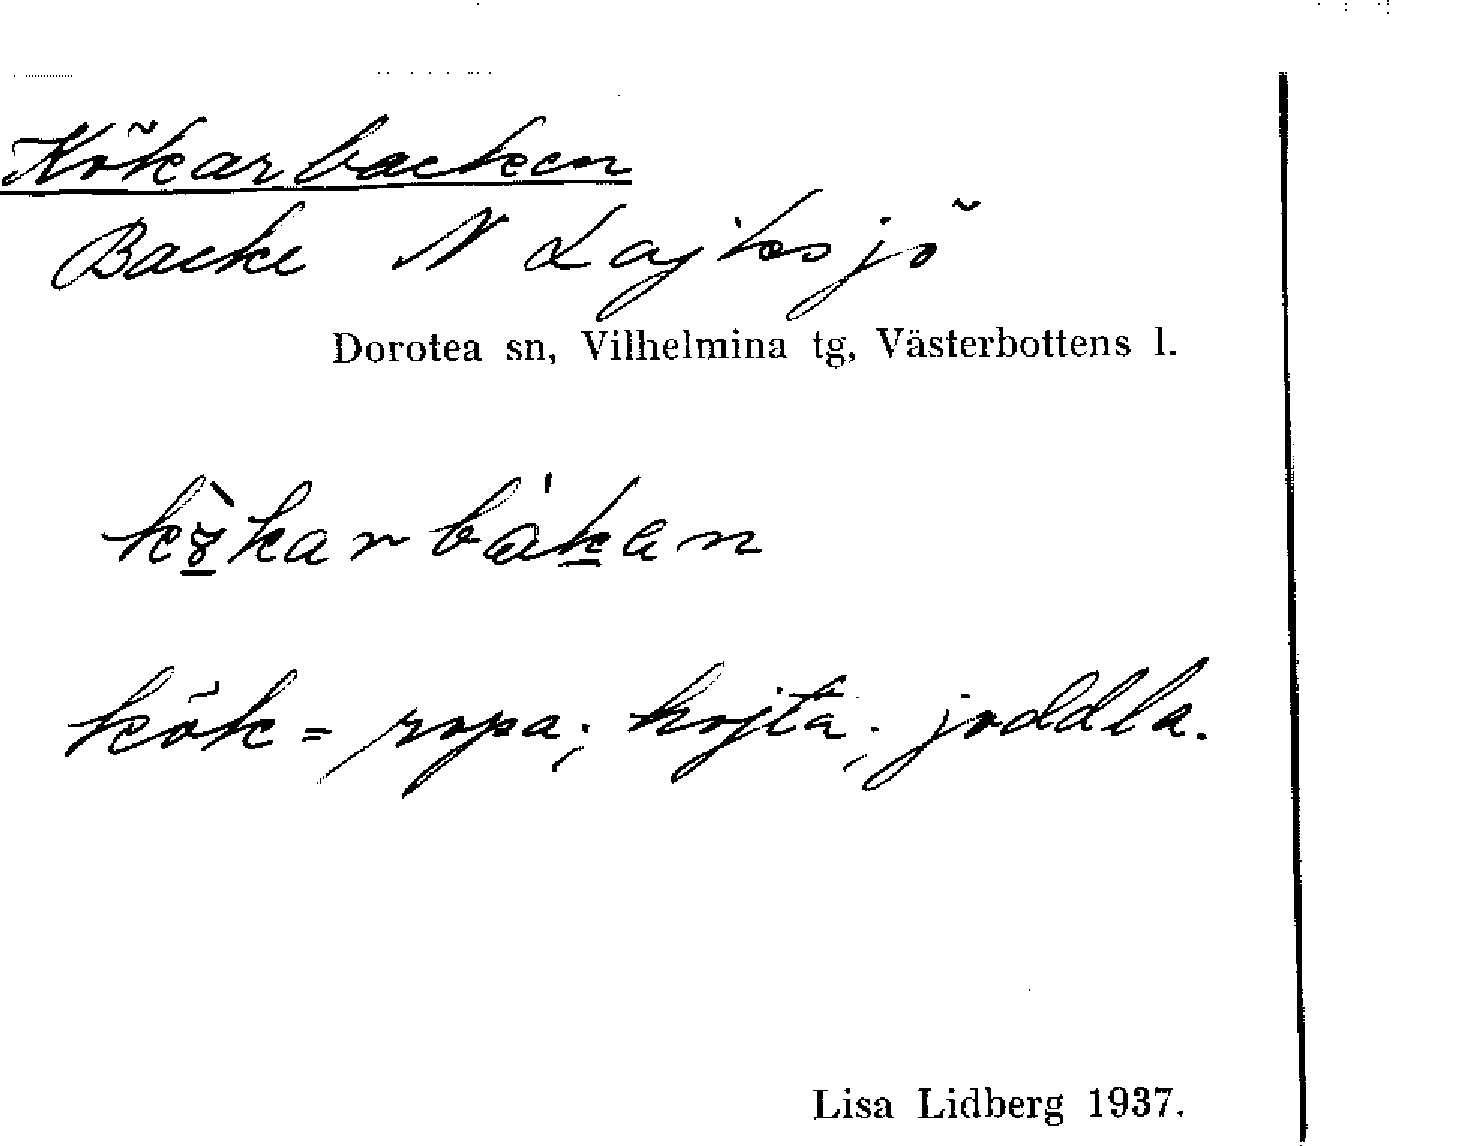 Kökarbacken
Backe N Lajksjö
Dorotea sn, Vilhelmina tg, Västerbottens l.
kök = ropa; hojta; joddla.
Lisa Lidberg 1937.